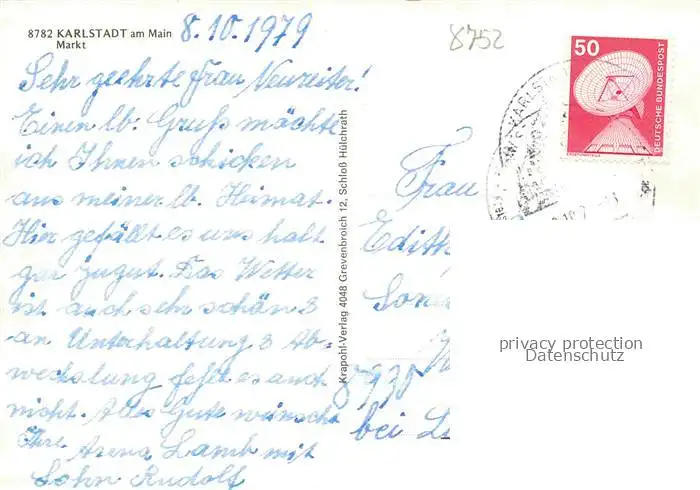 8782 KARLSTADT am Main
Markt
8.10.1979
8752
Sehr geehrte Frau Neureiter!
Einen lb. Gruß möchte
ich Ihnen schicken
aus meiner lb. Heimat.
Hier gefällt es uns halt
gar zugut. Das Wetter
ist auch sehr schön &
an Unterhaltung & Ab=
wechslung fehlt es auch
nicht. Alles Gute wünscht
Ihre Lamb mit
Sohn Rudolf
Krapohl-Verlag 4048 Grevenbroich 12, Schloß Hülchrath
50
DEUTSCHE BUNDESPOST
KARLSTADT
Frau
Edith
bei
privacy protection
Datenschutz